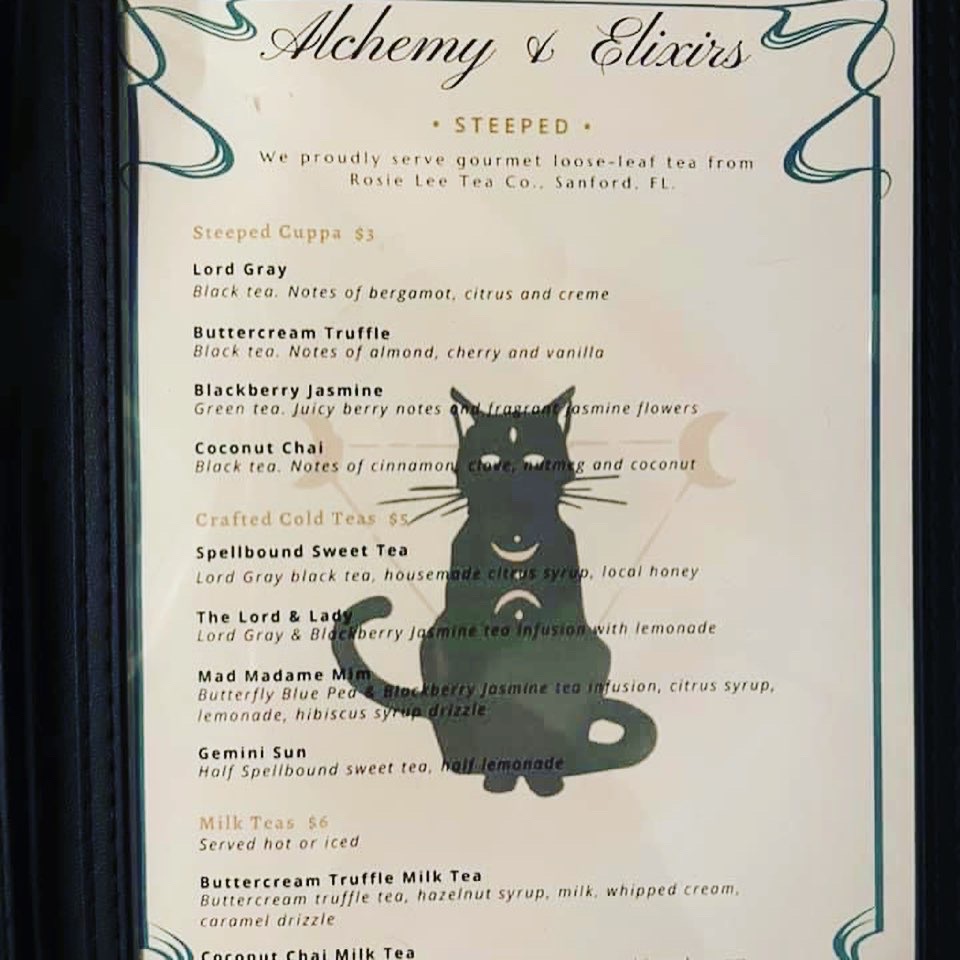 Alchemy & Elixirs
• STEEPED •
We proudly serve gourmet loose-leaf tea from
Rosie Lee Tea Co., Sanford, FL.
Steeped Cuppa $3
Lord Gray
Black tea. Notes of bergamot, citrus and creme
Buttercream Truffle
Black tea. Notes of almond, cherry and vanilla
Blackberry Jasmine
Green tea. Juicy berry notes and fragrant jasmine flowers
Coconut Chai
Black tea. Notes of cinnamon, clove, nutmeg and coconut
Crafted Cold Teas $5
Spellbound Sweet Tea
Lord Gray black tea, housemade citrus syrup, local honey
The Lord & Lady
Lord Gray & Blackberry Jasmine tea infusion with lemonade
Mad Madame Mim
Butterfly Blue Pea & Blackberry Jasmine tea infusion, citrus syrup,
lemonade, hibiscus syrup drizzle
Gemini Sun
Half Spellbound sweet tea, half lemonade
Milk Teas $6
Served hot or iced
Buttercream Truffle Milk Tea
Buttercream truffle tea, hazelnut syrup, milk, whipped cream,
caramel drizzle
Coconut Chai Milk Tea